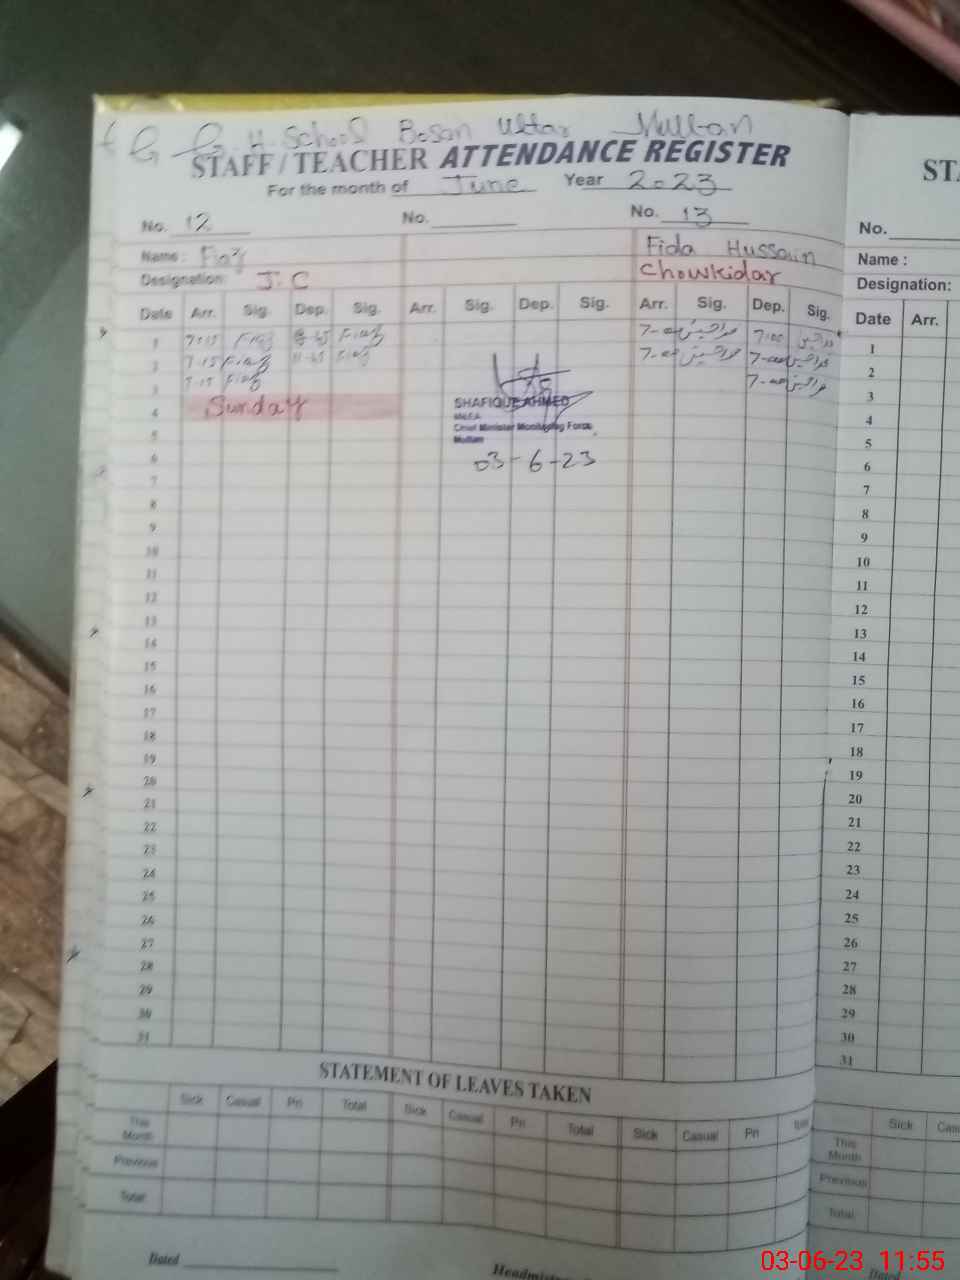 G. G. H. School Bosan Uttar Multan
STAFF / TEACHER ATTENDANCE REGISTER
For the month of June Year 2023
No. 12 No. No. 13
Name : Fiaz Fida Hussain
Designation: J.C Chowkidar
Date Arr. Sig. Dep. Sig. Arr. Sig. Dep. Sig. Arr. Sig. Dep. Sig.
1 7:15 Fiaz Fiaz 7-00 7:00
2 7-15 Fiaz 11-45 Fiaz 7-00 7-00
3 7-15 Fiaz 7-00
4 Sunday
SHAFIQUE AHMED
M&EA
Chief Minister Monitoring Force
Multan
03-6-23
5
6
7
8
9
10
11
12
13
14
15
16
17
18
19
20
21
22
23
24
25
26
27
28
29
30
31
STATEMENT OF LEAVES TAKEN
Sick Casual Pri Total Sick Casual Pri Total Sick Casual Pri Total
This Month
Previous
Total
Dated
Headmist
STA
No.
Name :
Designation:
Date Arr.
1
2
3
4
5
6
7
8
9
10
11
12
13
14
15
16
17
18
19
20
21
22
23
24
25
26
27
28
29
30
31
Sick Cas
This Month
Previous
Total
Dated
03-06-23 11:55